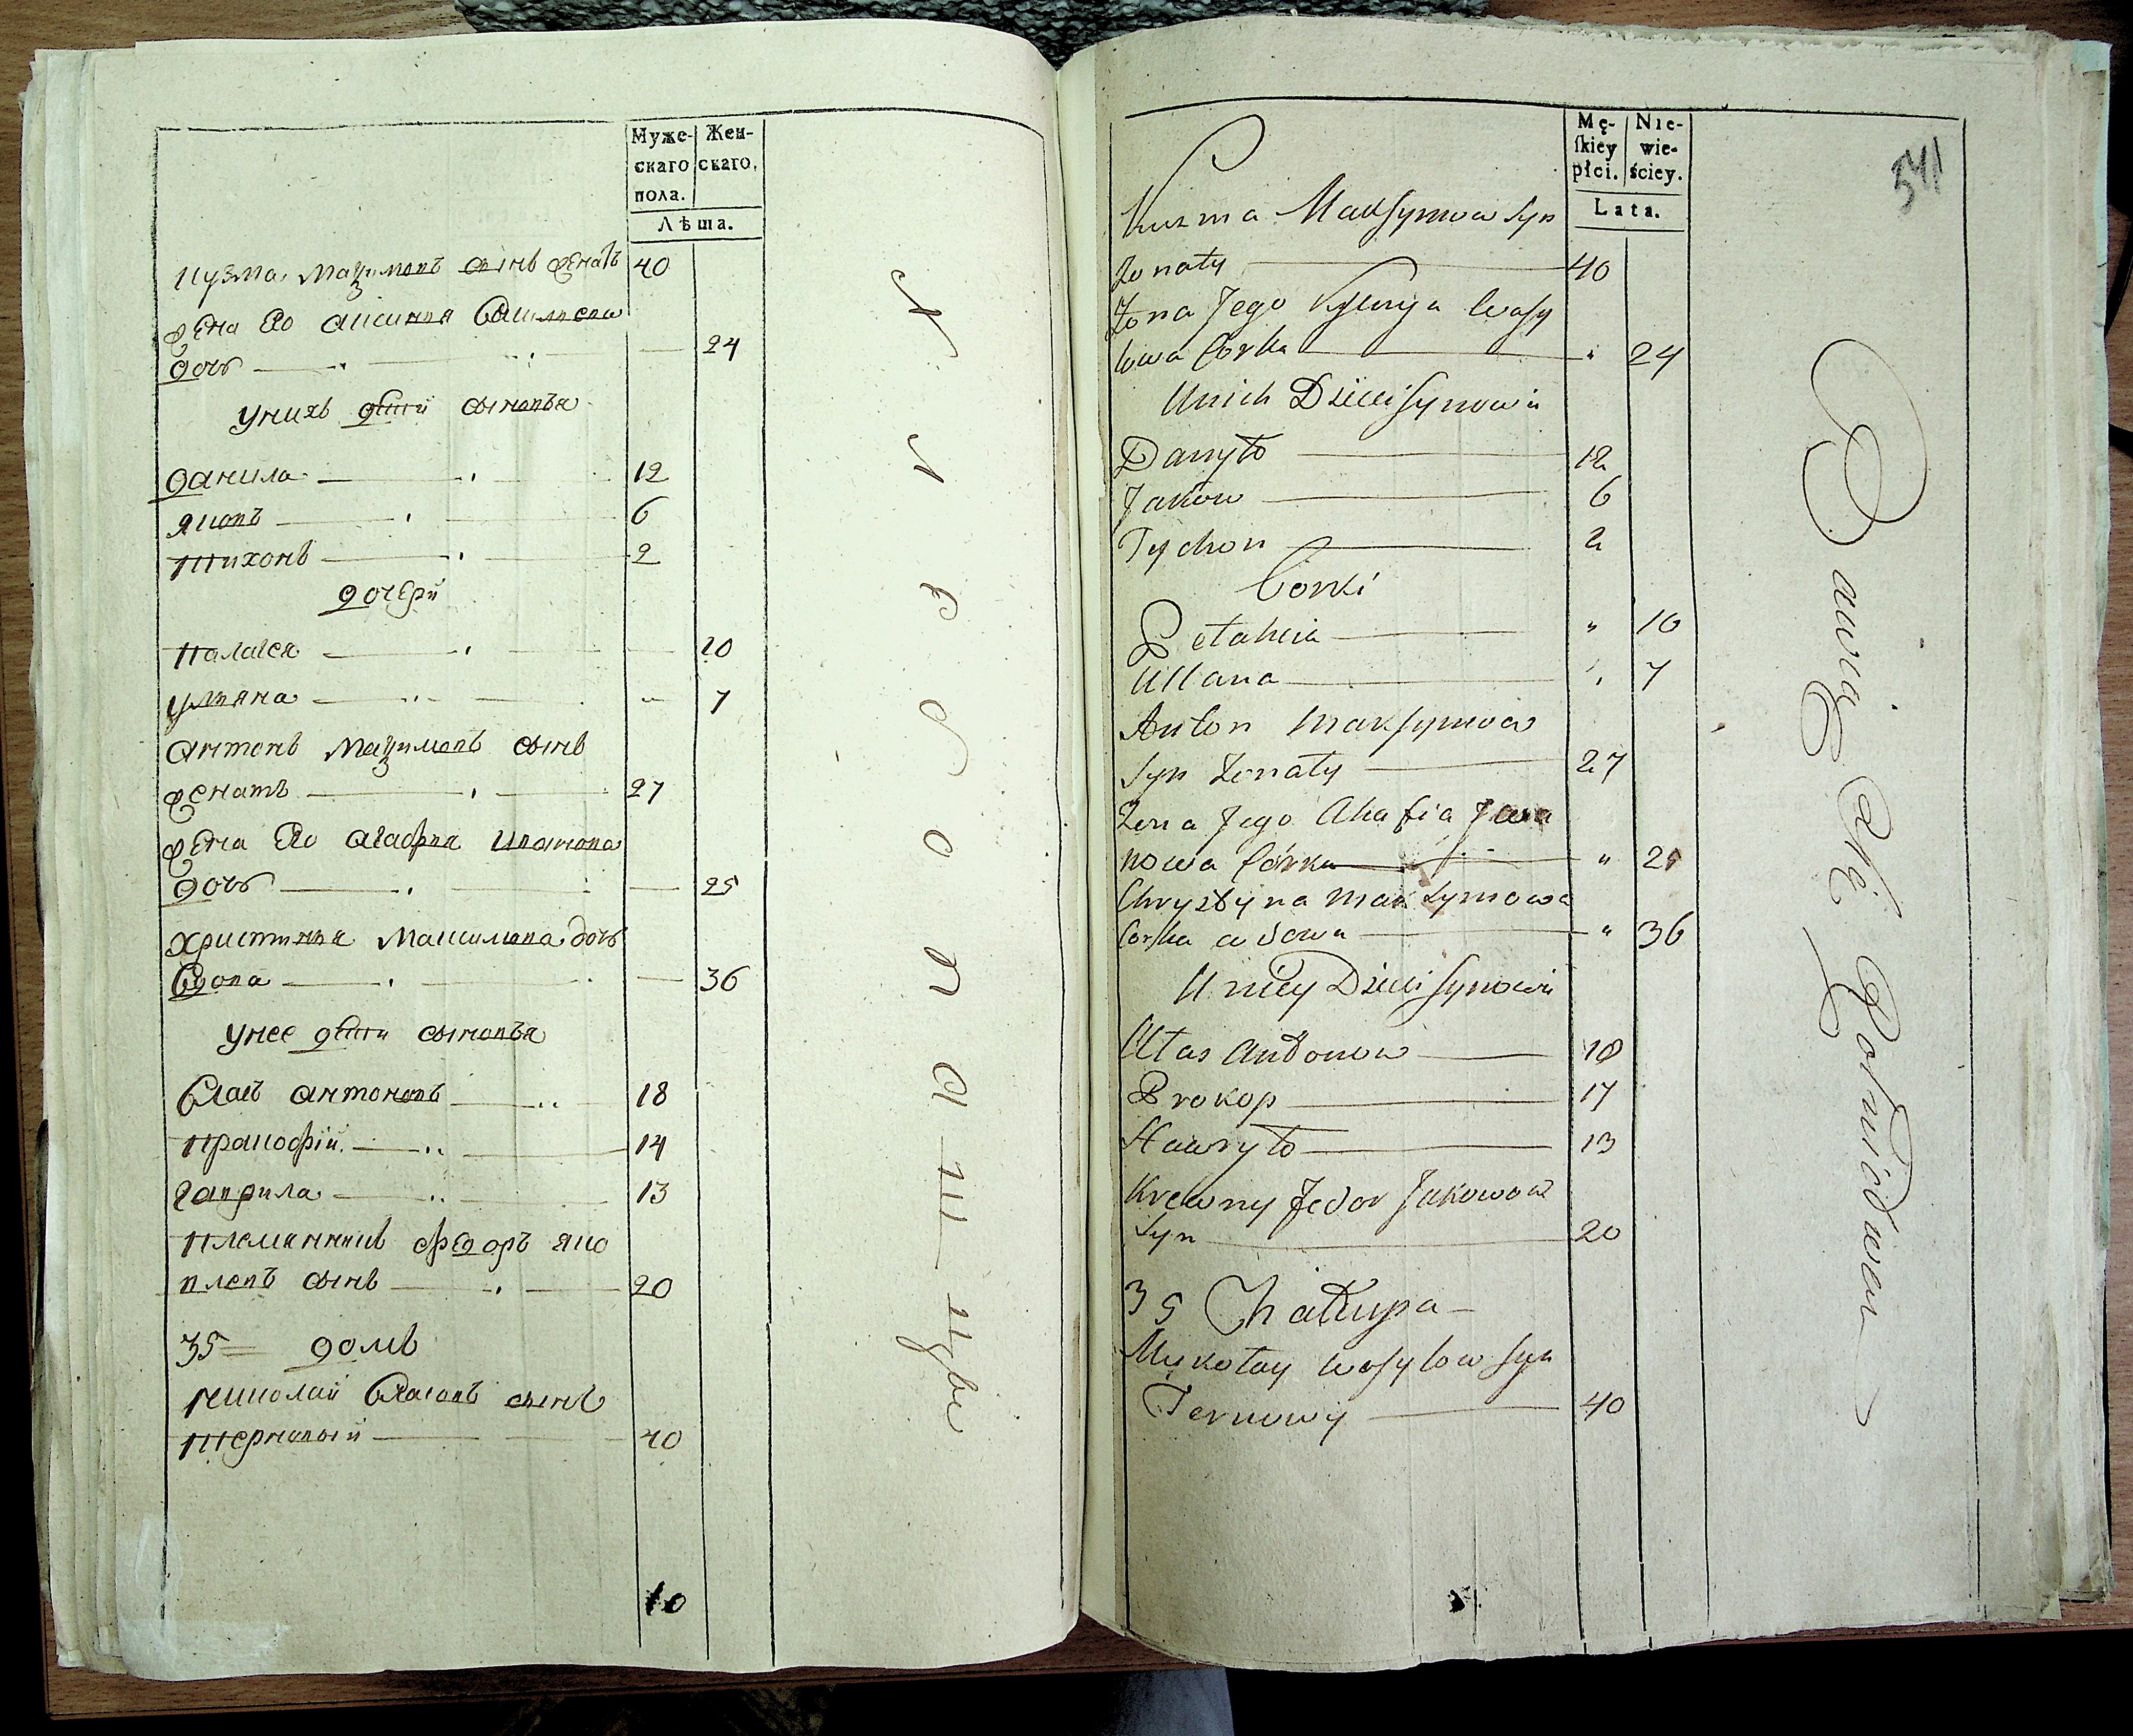 Муже-
скаго
пола.
Жен-
скаго.
Лѣта.
Кузма Мазимовъ сынъ женатъ 40
жена Его аксиния Василиева
дочь 24
У нихъ дети сыновья
данила 12
яковъ 6
тихонъ 2
дочери
палагея 10
ульяна 7
антонъ Мазимовъ сынъ
женатъ 27
жена Его агафия иванова
дочь 25
христиния Максимова дочь
вдова 36
У нее дети сыновья
Власъ антоновъ 18
пракофій 14
гаврила 13
племянникъ федоръ яко
влевъ сынъ 20
35 = домъ
николай Власовъ сынъ
терновой 40
10
Хлебопашцы
541
Mę-
ſkiey
płci.
Nie-
wie-
ściey.
Lata.
Kuzma Maksymow syn
Zonaty 40
Zona Jego Xsenya Wasy
lowa Corka " 24
U nich Dzieci synowie
Danyło 12
Jakow 6
Tychon 2
Corki
Pełahia " 10
Ullana " 7
Anton Maksymow
syn Zonaty 27
Zona Jego Ahafia Jwa
nowa Córka " 25
Chrystyna Maksymowa
Corka wdowa " 36
U niey Dzieci synowie
Ułas Andonow 18
Prokop 14
Hawryło 13
Krewny Fedor Jakowow
syn 20
35 Chałupa
Mykołay Wasylow syn
Ternowy 40
Bawią się Rolnictwem